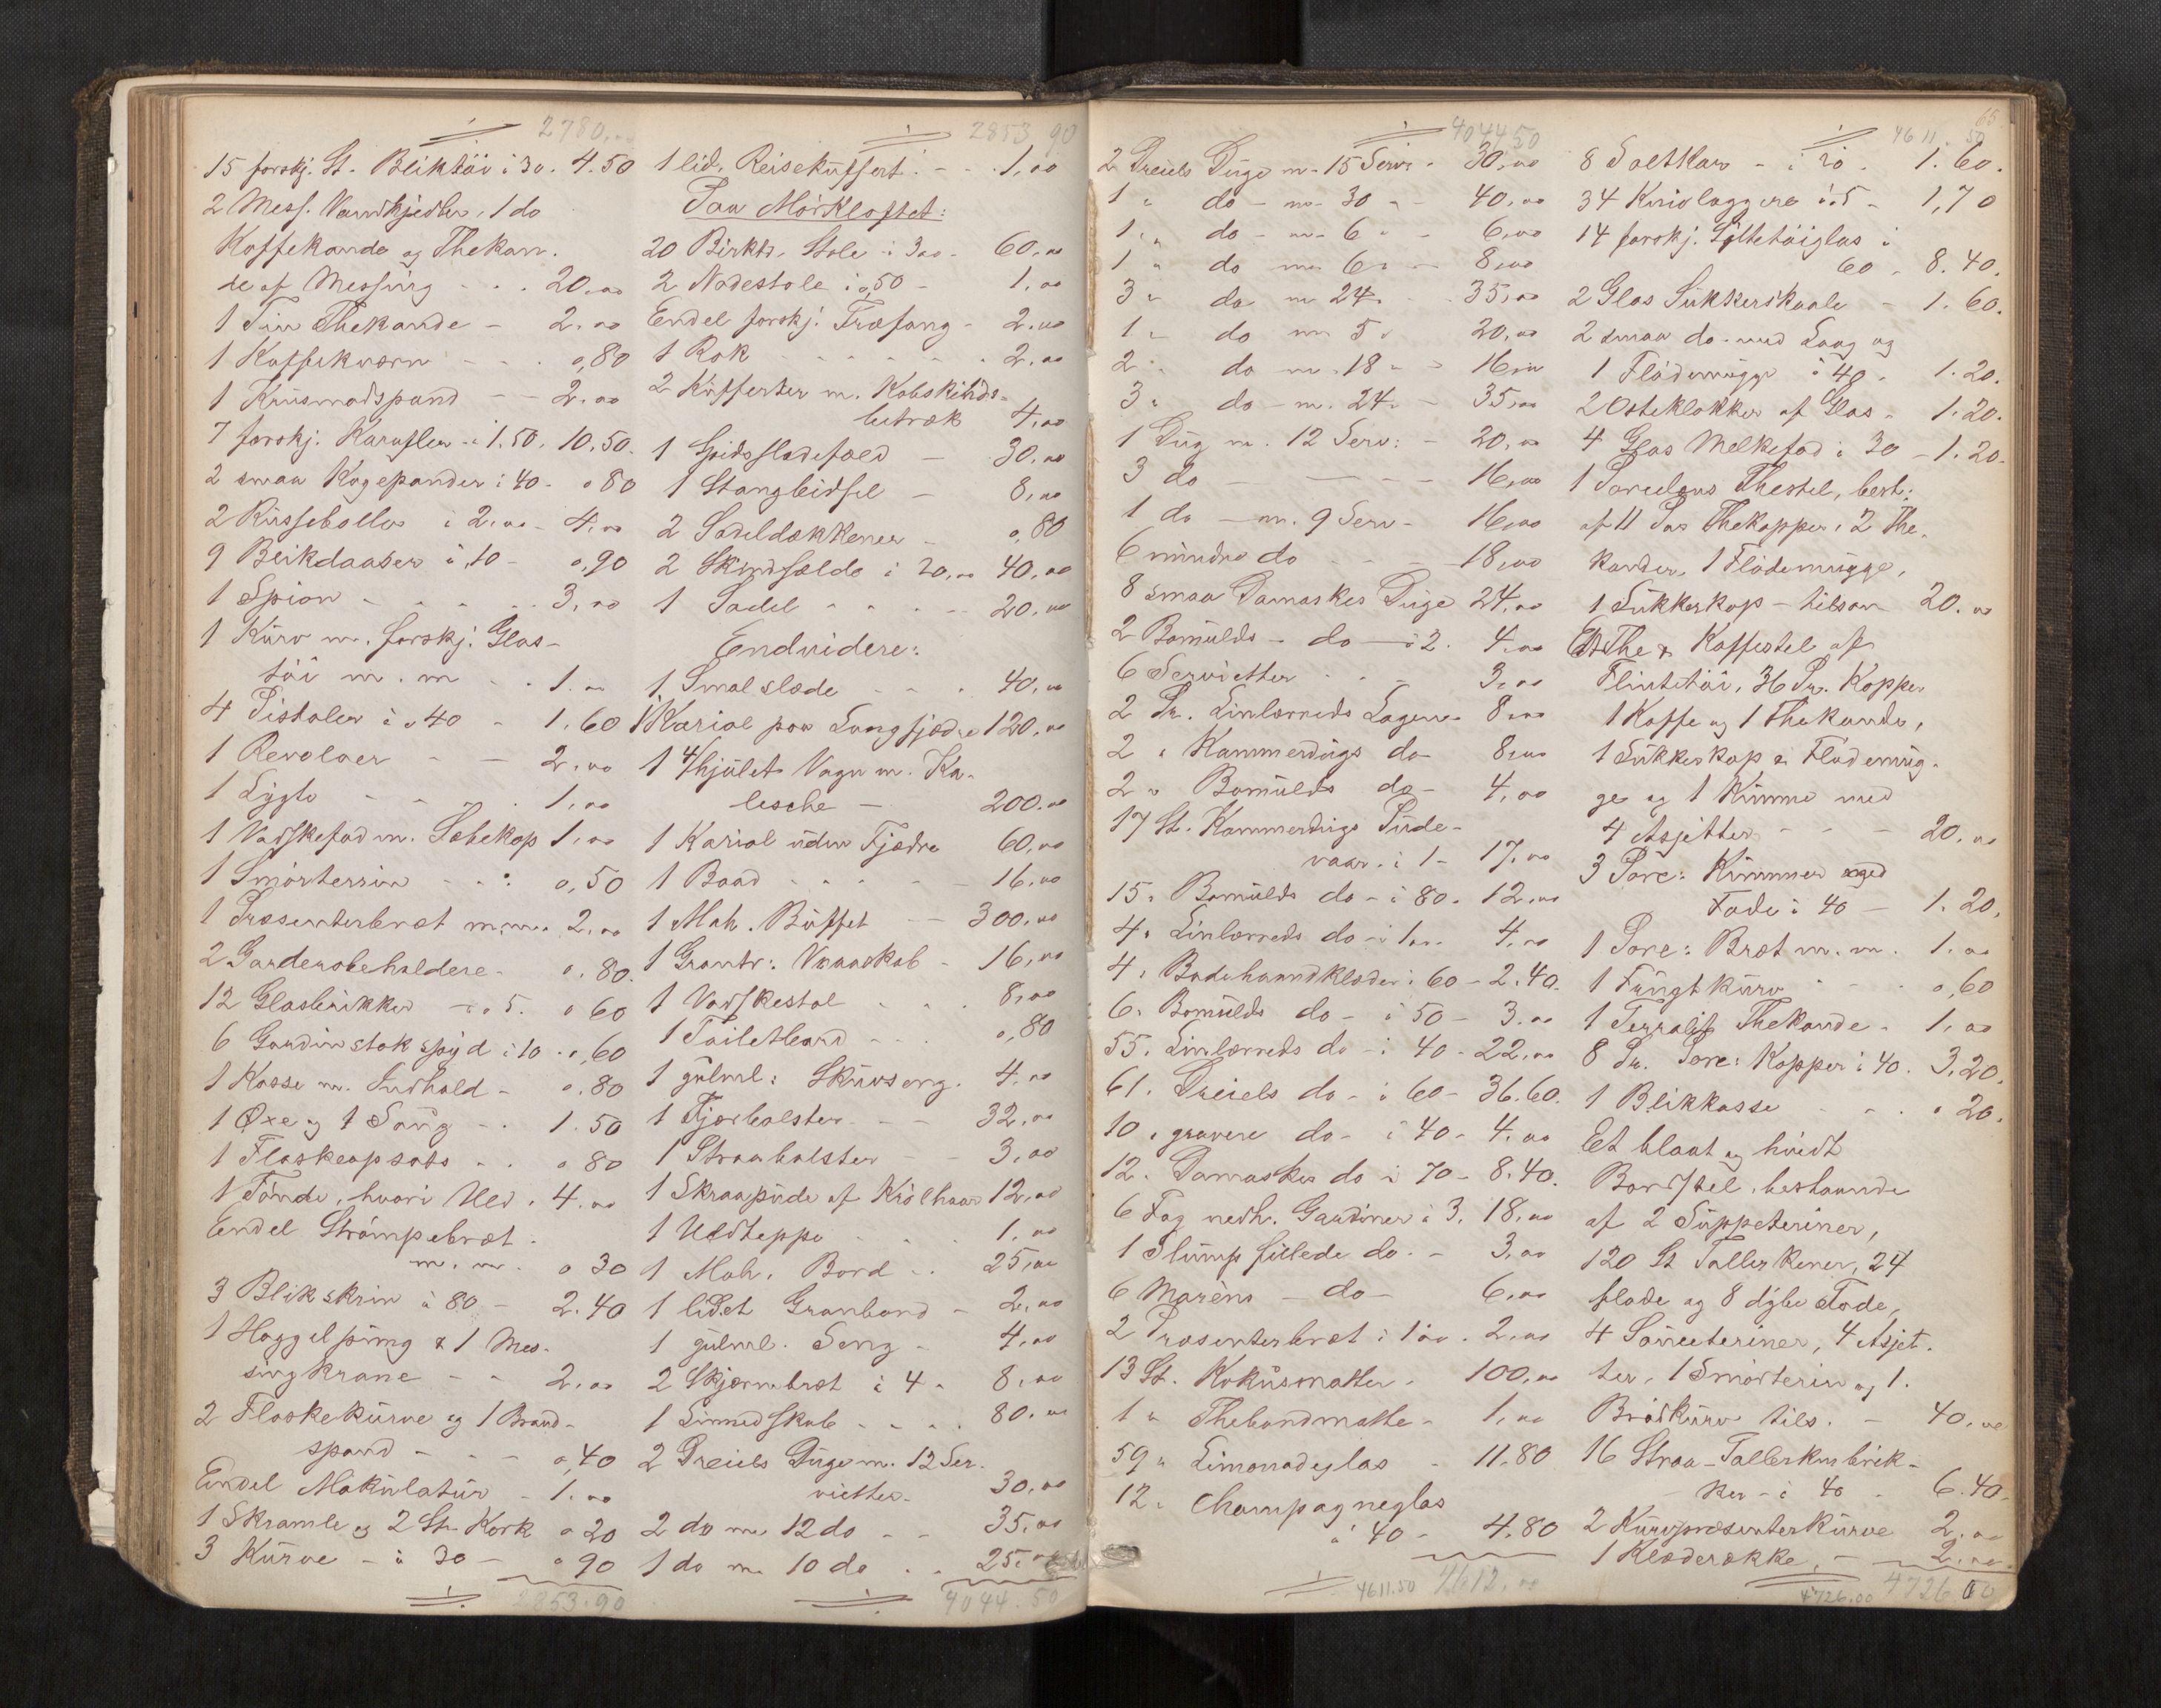 2780,00
15 forskj. St. Bliktöi à 30. 4.50
2 Mess. Vandkjedler, 1 do
Kaffekande og Thekan-
de af Messing - - - 20.00
1 Tin Thekande - 2.00
1 Kaffekværn - - - 0,80
1 Knusmadspand - - 2.00
7 forskj. Karafler à 1.50. 10.50.
2 smaa Kogepander à 40 - 0 80
2 Pusseboller à 2.00 - 4.00
9 Blikdaaser à 10 - 0,90
1 Spion - - - - 3,00
1 Kurv m. forskj. Glas-
töi m. m - - 1.00
4 Pistoler à 0 40 - 1.60
1 Revolver - - 2.00
1 Lygte - - - 1,00
1 Vadskefad m. Sæbekop 1,00
1 Smörterrin - - 0,50
1 Præsenterbræt m.m. 2.00
2 Garderobeholdere - 0.80.
12 Glasbrikker - à 5. 0 60
6 Gardinstokspyd à 10 - 0,60
1 Kasse m. Indhold - 0.80
1 Øxe og 1 Saug - - 1.50
1 Flaskeopsats - - 0 80
1 Tönde, hvori Uld. 4.00
Endel Strömpebræt
m. m. 0 30
3 Blikskrin à 80 - 2.40
1 Haggelpung & 1 Mes-
singkrane - - 2.00
2 Flaskekurve og 1 Brand-
spand - - - 0,40
Endel Makulatur - 1.00
1 Skramle og 2 St. Kork 0 20
3 Kurve - à 30 - 0 90
2853.90
2853 90
1 lid. Reisekuffert - - 1,00
Paa Mörkloftet:
20 Birktr. Stole à 3.00 - 60.00
2 Nodestole à 0,50 - 1.00
Endel forskj. Træfang - 2.00
1 Rok - - - - - 2.00
2 Kufferter m. Kobskinds-
betræk 4,00
1 Spidsslædefæld - 30.00
1 Stangbidsel - 8,00
2 Sadeldækkener - 0,80
2 Skindfælde à 20,00 40,00
1 Sadel - - - - 20.00
Endvidere:
1 Smalslæde - - - 40,00
1 Kariol paa Langfjædre 120,00
1 4/hjulet Vogn m. Ka-
lesche - 200.00
1 Kariol uden Fjædre 60,00
1 Baad - - - - - 16,00
1 Mah. Büffet - - 300,00
1 Grantr: Vraaskab - 16,00
1 Vadskestol - - - 8,00
1 Toiletbord - - - 0,80
1 gulml: Skuvseng. 4.00
1 Fjærbolster - - - 32,00
1 Straabolster - - 3,00
1 Skraapude af Krölhaar 12,00
1 Uldteppe - - - 1.00
1 Mah. Bord - - 25,00
1 lidet Granbord - 2,00
1 gulml. Seng - 4,00
2 Skjærmbræt à 4 - 8,00
1 Linnedskab - - - 80.00
2 Dreiels Duge m. 12 Ser-
vietter - 30,00
2 do m. 12 do - - 35,00
1 do m. 10 do - - 25.00
4044.50
4044 50
2 Dreiels Duge m. 15 Serv. 30,00
1 " do - m. 30 " - 40,00
1 " do - m. 6 " - 6,00
1 " do m. 6 " - 8,00
3 " do m. 24 - 35,00
1 " do m. 5 " 20,00
2 " do m. 18 - - 16,00
3 " do - m. 24 - 35,00
1 Dug m. 12 Serv: - 20,00
3 do - - - - 16,00
1 do - m. 9 Serv - 16,00
6 mindre do - - - 18,00
8 smaa Damaskes Duge 24,00
2 Bomulds - do - à 2. 4.00
6 Servietter - - - 3,00
2 Pr. Linlærreds Lagener 8,00
2 " Kammerdugs do 8,00
2 " Bomulds do - 4,00
17 St. Kammerdugs Pude-
vaar à 1 - 17,00
15 " Bomulds do - à 80. 12.00
4 " Linlærreds do - à 1.00 4,00
4 " Badehaandklæder à 60 - 2.40.
6 " Bomulds do - à 50 - 3.00
55 " Linlærreds do - à 40 - 22,00
61 " Dreiels do - à 60 - 36.60.
10 " grovere do - à 40 - 4.00
12 " Damaskes do à 70 - 8.40.
6 Fag nedh. Gardiner à 3. 18,00
1 Slump fillede do. - 3,00
6 Marens - do - 6,00
2 Præsenterbræt à 1.00 . 2,00
13 St. Kokusmatter - 100,00
1 " Thebordmatte - 1,00
59 " Limonadeglas - 11.80
12 " Champagneglas
à 40 - 4.80
4611.50 4612,00
65
4611. 50
8 Saltkar - à 20 - 1.60.
34 Knivlæggere à 5 - 1,70
14 forskj. Syltetöiglas à
60 - 8.40.
2 Glas Sukkerskaale - 1.60.
2 smaa do. med Laag og
1 Flödemugge à 40. 1.20.
2 Osteklokker af Glas - 1.20.
4 Glas Melkefad à 30 - 1.20.
1 Porcelæns Thestel, best:
af 11 Par Thekopper, 2 The-
kander, 1 Flödemugge,
1 Sukkerkop - tilsam 20.00
Et The & Kaffestel af
Flintetöi, 36 Pr. Kopper
1 Kaffe og 1 Thekande,
1 Sukkerkop & Flödemug-
ge og 1 Kumme med
4 Asjetter - - - 20.00
3 Porc: Kummer med
Fade à 40 - 1.20.
1 Porc: Bræt m. m. 1.00
1 Frugtkurv - - - 0,60
1 Terralit Thekande - 1,00
8 Pr. Porc: Kopper à 40. 3.20.
1 Blikkasse - - - 0 20.
Et blaat og hvidt
Bordstel, bestaaende
af 2 Suppeteriner,
120 St Tallerkener, 24
flade og 8 dybe Fade,
4 Sauceteriner, 4 Asjet-
ter, 1 Smörterin og 1
Brödkurv tils. - 40,00
16 Straa-Tallerkenbrik-
ker - à 40 - 6.40.
2 Kurvpræsenterkurve 2.00
1 Klæderække - 2.00
4726.00 4726 00